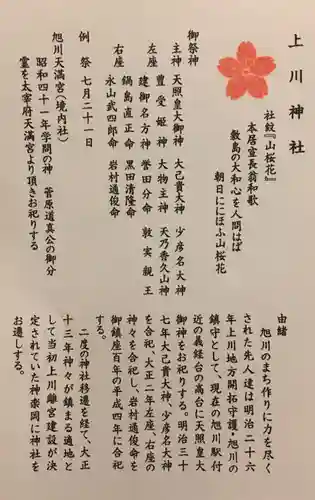 上川神社
社紋『山桜花』
本居宣長翁和歌
敷島の大和心を人間はば
朝日ににほふ山桜花
御祭神
主神 天照皇大御神 大己貴大神 少彦名大神
左座 豊受姫神 大物主神 天乃香久山神
建御名方神 誉田分命 敦実親王
右座 鍋島直正命 黒田清隆命
永山武四郎命 岩村通俊命
例祭 七月二十一日
旭川天満宮(境内社)
昭和四十一年学問の神 菅原道真公の御分
霊を太宰府天満宮より頂きお祀りする
由緒
旭川のまち作りに力を尽く
された先人達は明治二十六
年上川地方開拓守護・旭川の
鎮守として、現在の旭川駅付
近の義経台の高台に天照皇大
御神をお祀りする。明治三十
七年大己貴大神、少彦名大神
を合祀、大正二年左座、右座の
神々を合祀し、岩村通俊命を
御鎮座百年の平成四年に合祀
する。
二度の神社移遷を経て、大正
十三年神々が鎮まる適地と
して当初上川離宮建設が決
定されていた神楽岡に神社を
お遷しする。